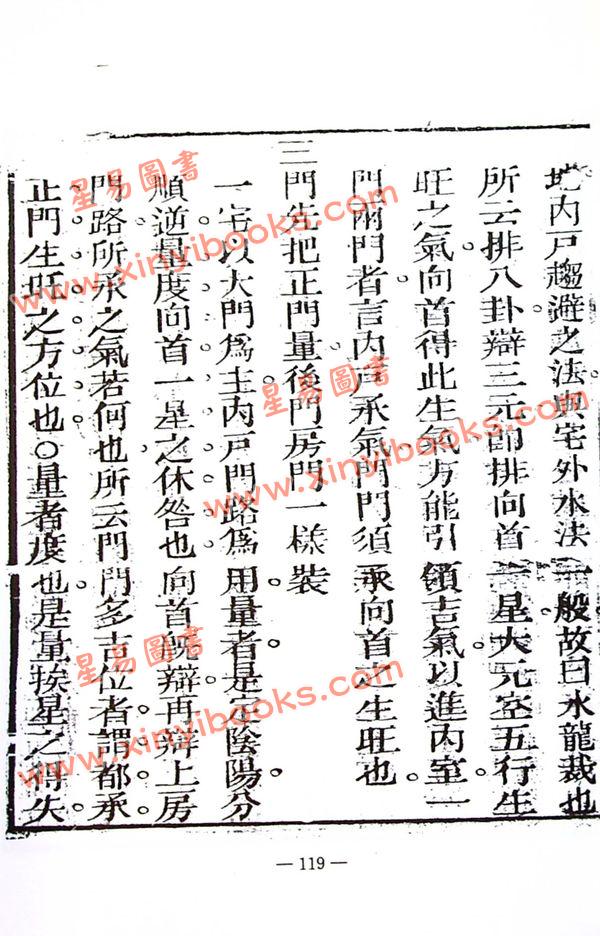 地內戸趨避之法與宅外水法一般故曰水龍裁也
所云排八卦辯三元即排向首一星大元空五行生
旺之氣向首得此生氣方能引領吉氣以進內室一
門兩門者言內戸承氣門門須乘向首之生旺也
三門先把正門量後門房門一樣裝
一宅以大門爲主內戸門路爲用量者是定陰陽分
順逆量度向首一星之休咎也向首既辯再辯上房
門路所承之氣若何也所云門門多吉位者謂都承
正門生旺之方位也○量者度也是量挨星之得失
— 119 —
星易圖書
www.xinyibooks.com
星易圖書
www.xinyibooks.com
星易圖書
www.xinyibooks.com